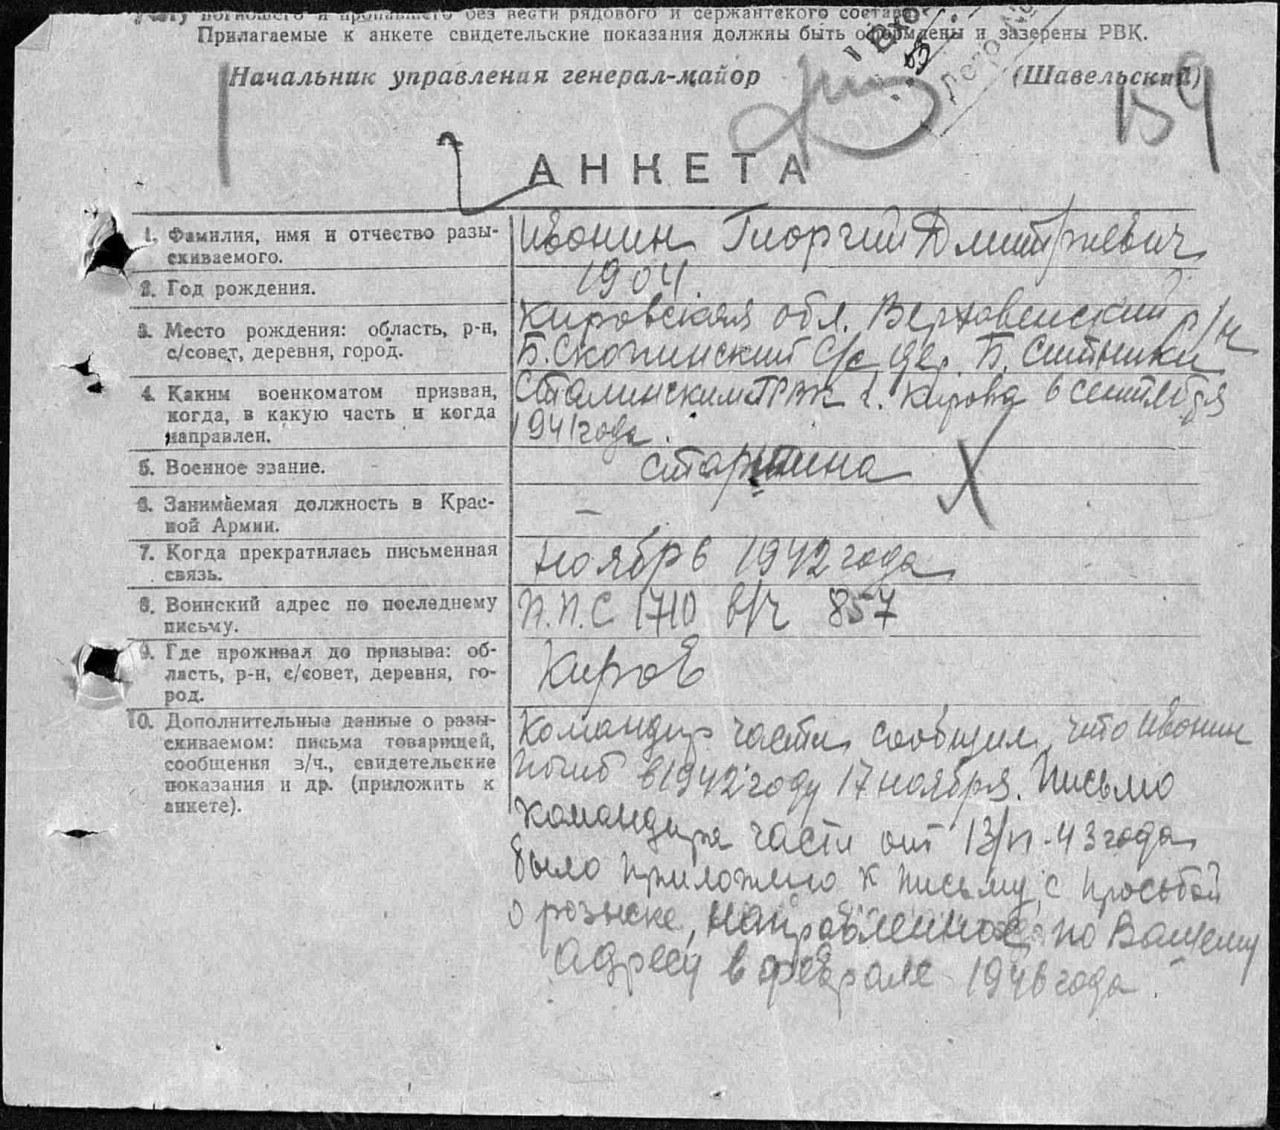 погибшего и пропавшего без вести рядового и сержантского состава
Прилагаемые к анкете свидетельские показания должны быть оформлены и заверены РВК.
Начальник управления генерал-майор (Шавельский)
159
АНКЕТА
1. Фамилия, имя и отчество разы-
скиваемого.
Ивонин Георгий Дмитриевич
2. Год рождения.
1904
3. Место рождения: область, р-н,
с/совет, деревня, город.
Кировская обл. Верховенский р/н
Б. Скопинский С/с дер. Б. Ситники
4. Каким военкоматом призван,
когда, в какую часть и когда
направлен.
Сталинским ГРВК г. Кирова в сентября
1941 года
5. Военное звание.
старшина
6. Занимаемая должность в Крас-
ной Армии.
–
7. Когда прекратилась письменная
связь.
Ноябрь 1942 года
8. Воинский адрес по последнему
письму.
П.П.С 1710 в/ч 857
9. Где проживал до призыва: об-
ласть, р-н, с/совет, деревня, го-
род.
Киров
10. Дополнительные данные о разы-
скиваемом: письма товарищей,
сообщения в/ч., свидетельские
показания и др. (приложить к
анкете).
Командир части сообщил, что Ивонин
погиб в 1942 году 17 ноября. Письмо
командира части от 13/VI-43 года
было приложено к письму с просьбой
о розыске, направленное по Вашему
адресу в феврале 1946 года.